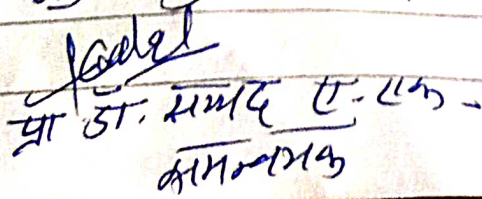 प्रा. डॉ. सय्यद ए. एक.
समन्वयक